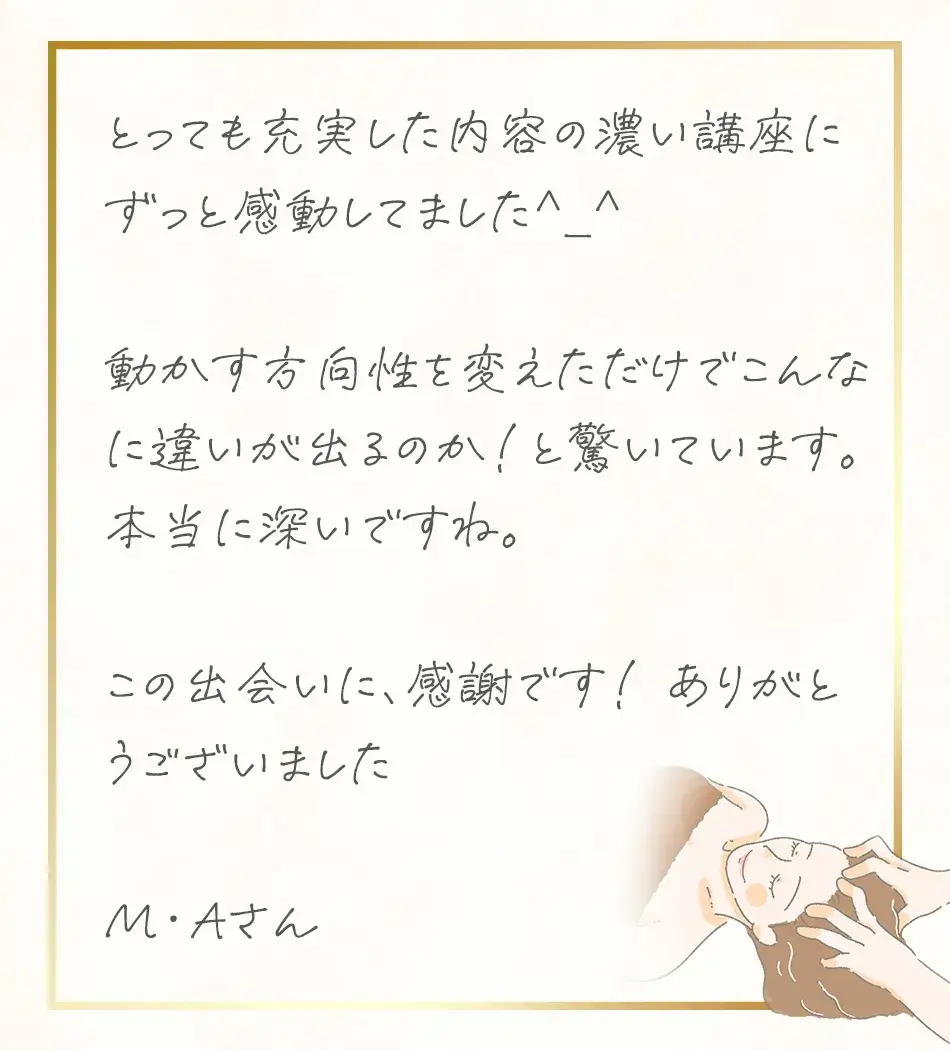 とっても充実した内容の濃い講座に
ずっと感動してました^_^
動かす方向性を変えただけでこんな
に違いが出るのか！と驚いています。
本当に深いですね。
この出会いに、感謝です！ ありがと
うございました
M・Aさん